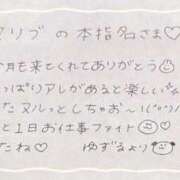 リブの本指名さま♡
月も来てくれてありがとう☺
っぱりアレがあると楽しい
たヌルっとしちゃお〜!(^^)
と1日お仕事ファイト☺
たね♡ ゆずきより